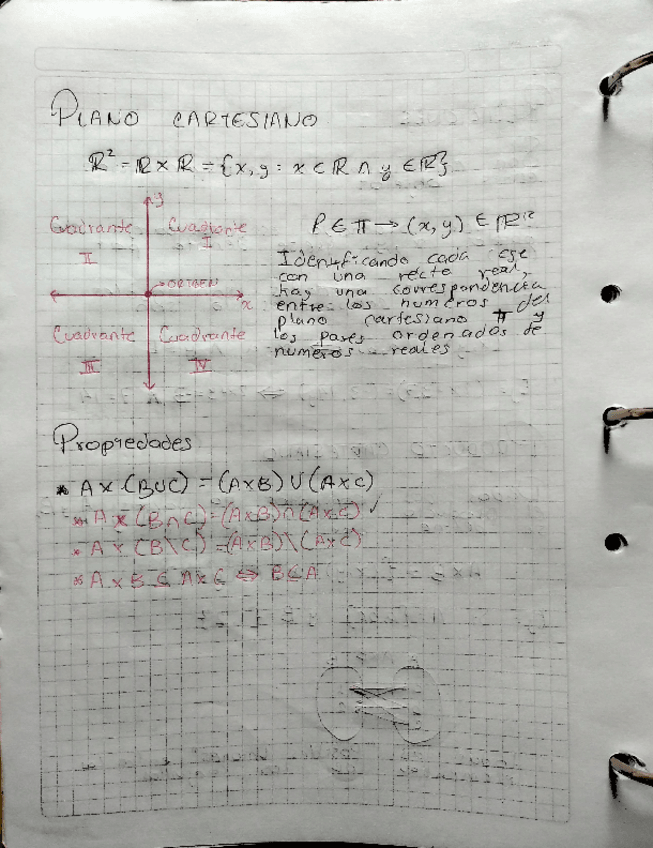 PLANO CARTESIANO
ℝ² = ℝ × ℝ = {x, y : x ∈ ℝ ∧ y ∈ ℝ}
y
Cuadrante II
Cuadrante I
ORIGEN
x
Cuadrante III
Cuadrante IV
P ∈ π → (x, y) ∈ ℝ²
Identificando cada eje
con una recta real,
hay una correspondencia
entre los numeros del
plano cartesiano π y
los pares ordenados de
numeros reales
Propiedades
* A × (B∪C) = (A×B) ∪ (A×C)
* A × (B∩C) = (A×B) ∩ (A×C) ✓
* A × (B\C) = (A×B) \ (A×C)
* A × B ⊆ A × C ⇔ B ⊆ A